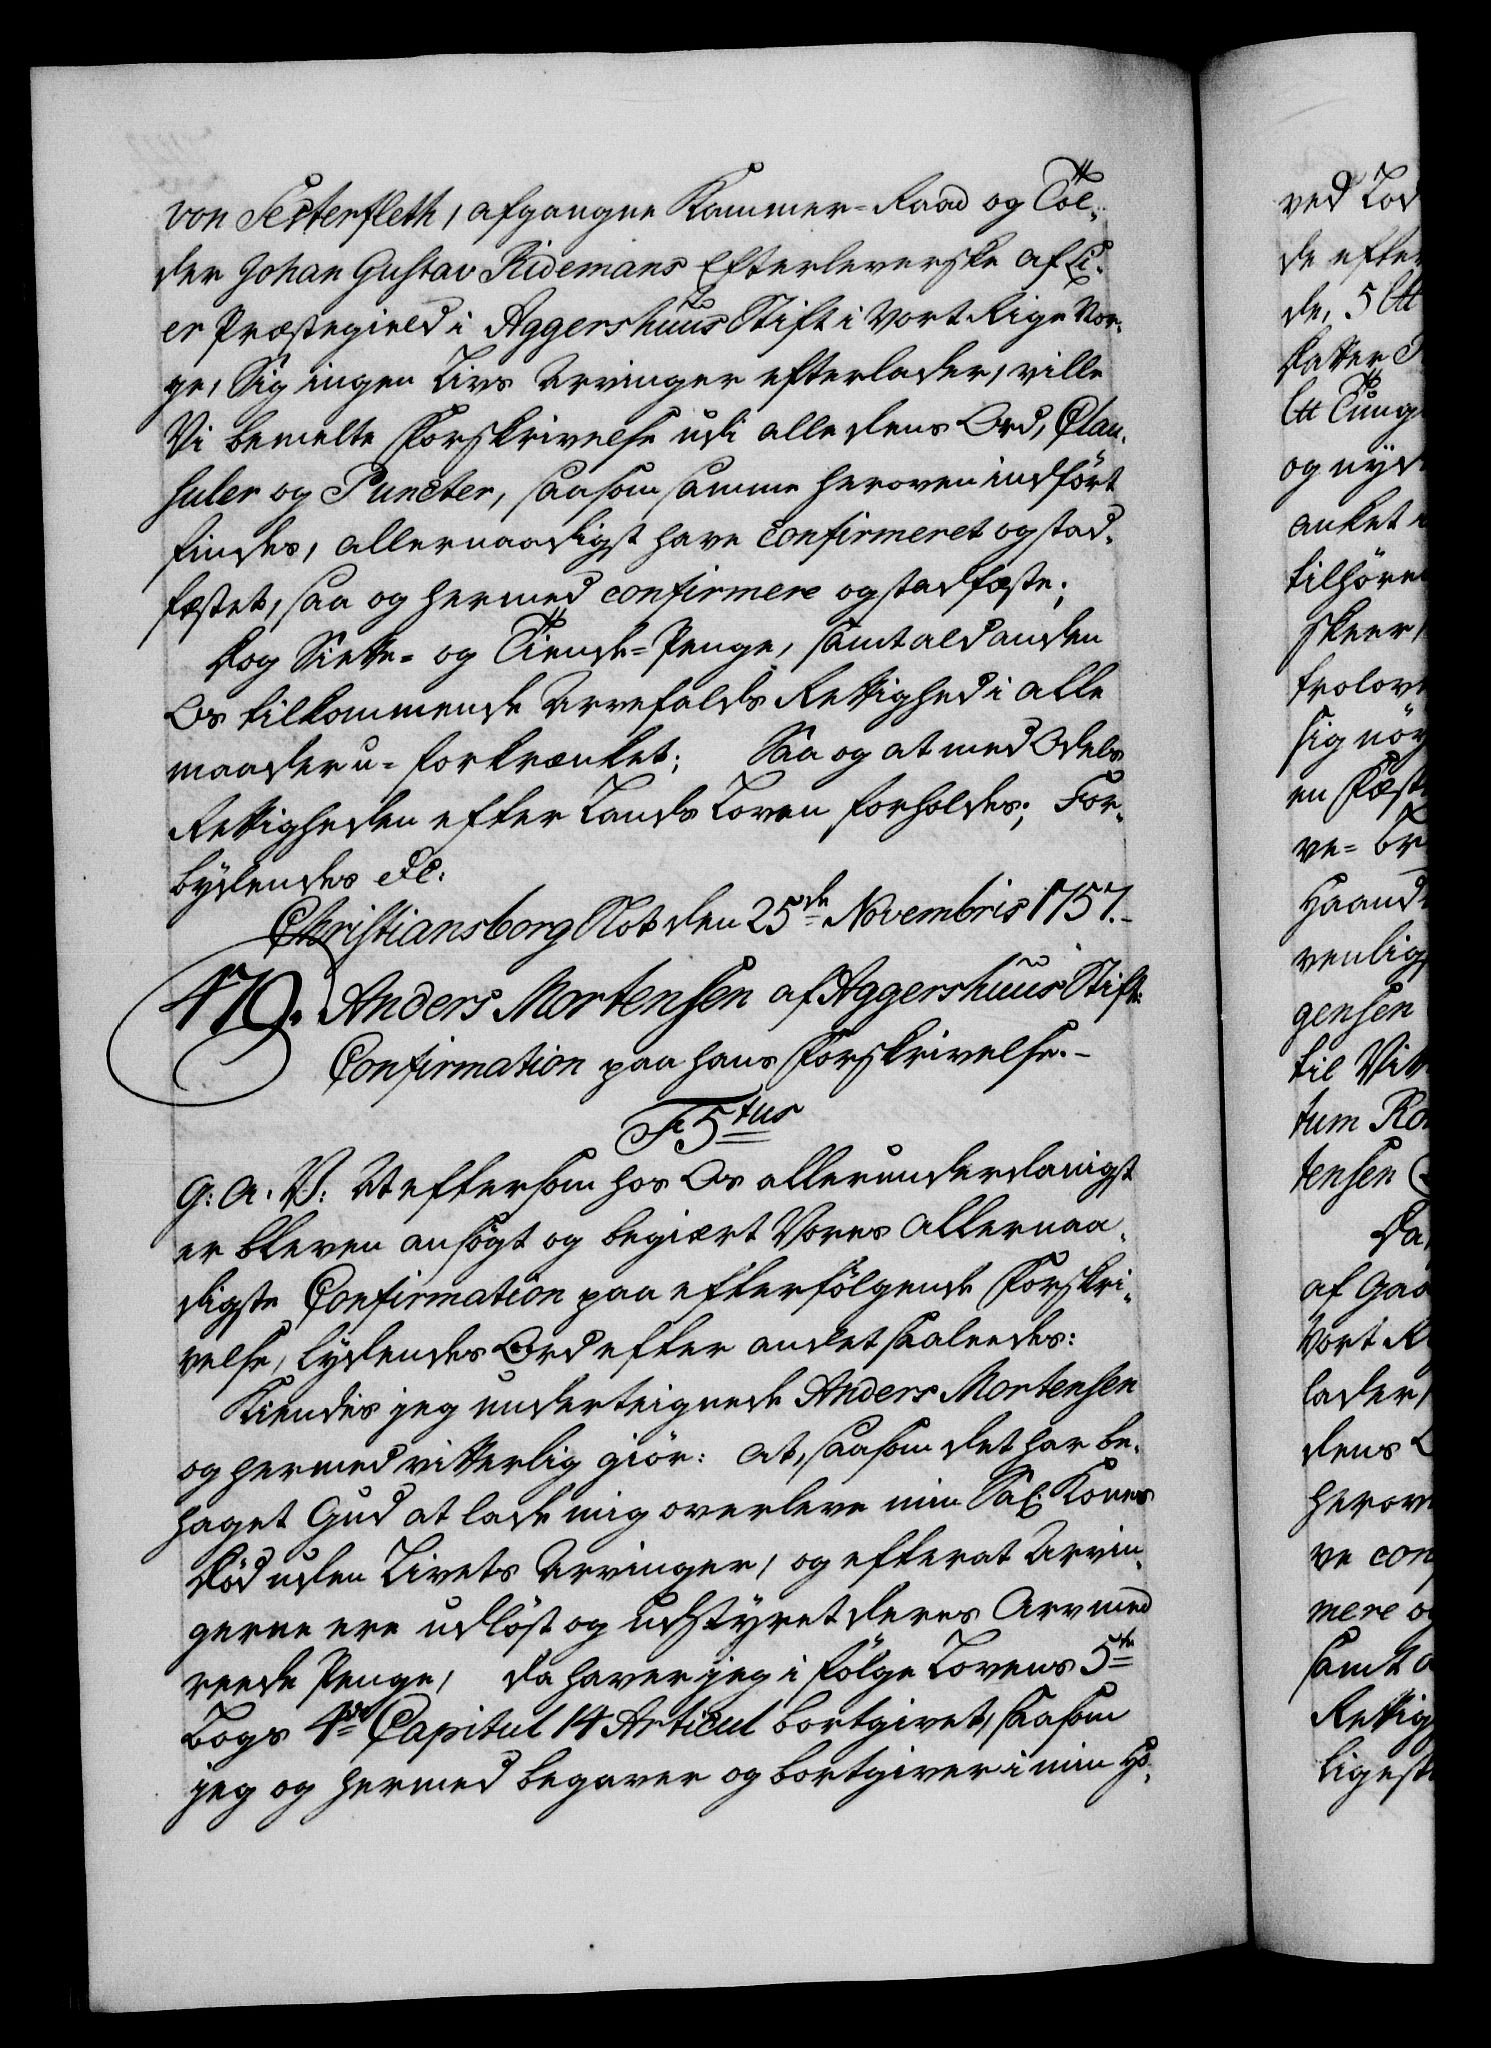 von Festerfleth, afgangne Kammer-Raad og Tol-
der Johan Gustav Ridemans Efterleverske af Li-
er Præstegield i Aggershuus Stift i Vort Rige Nor-
ge, Sig ingen Livs Arvinger efterlader, ville
Vi bemelte Forskrivelse udi alle dens Ord, Clau-
suler og Puncter, saasom samme heroven indført
findes, allernaadigst have confirmeret og stad-
fæstet, saa og hermed confirmere og stadfæste;
Dog Siette- og Tiende-Penge, samt ald anden
Os tilkommende Arvefalds Rettighed i alle
maader u-forkrænket; Saa og at med Odels
Rettigheden efter Lands Loven forholdes; For-
bydendes etc.
Christiansborg Slot den 25de Novembris 1757.-
479. Anders Mortensen af Aggershuus Stift:
Confirmation paa hans Forskrivelse.-
F5tus
G: A. V: At eftersom hos Os allerunderdanigst
er bleven ansøgt og begiært Vores allernaa-
digste Confirmation paa efterfølgende Forskri-
velse, lydendes Ord efter andet saaledes:
Kiendis jeg underteignede Anders Mortensen
og hermed vitterlig giör: at, saasom det har be-
haget Gud at lade mig overleve min Sal: Kones
Död uden Livets Arvinger, og efter at Arvin-
gerne ere udlöst og udstyret deres Arv med
reede Penge, da haver jeg i følge Lovens 5te
Bogs 4de Capitul 14 Articul bortgivet, saasom
jeg og hermed begaver og bortgiver i min Ho-
ved Lod
de efter
de, 5 Ott
Datter
Ott Tung
og nyde
anket
tilhøre
skeer,
trolov
sig nöy
en Fæst
ve-br
Haand
venlig
gensen
til Vitt
tum Ro
tensen
Da
af Gaa
Vort R
lader,
dens
herov
ve con
mere og
samt a
Rettig
ligest